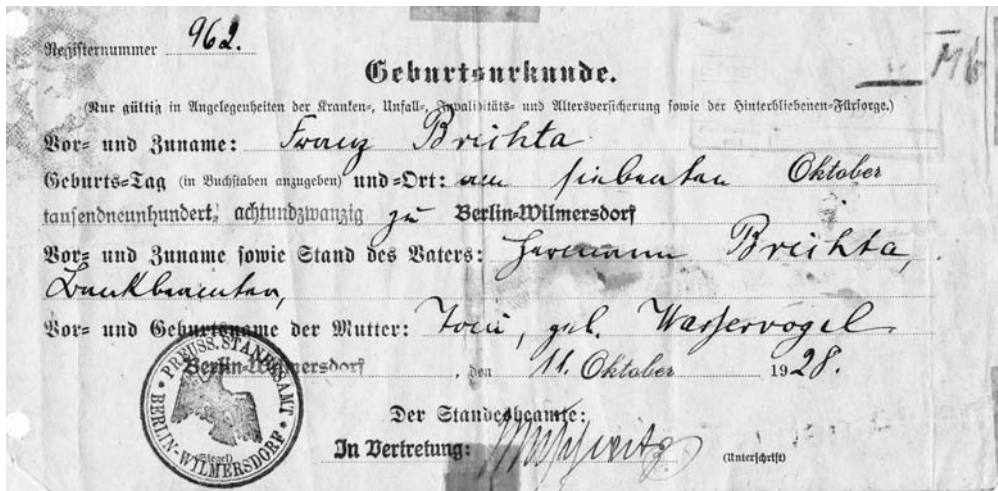 Registernummer 962.
Geburtsurkunde.
(Nur gültig in Angelegenheiten der Kranken-, Unfall-, Invaliditäts- und Altersversicherung sowie der Hinterbliebenen-Fürsorge.)
Vor- und Zuname: Franz Brichta
Geburts-Tag (in Buchstaben anzugeben) und -Ort: am siebenten Oktober
tausendneunhundert, achtundzwanzig zu Berlin-Wilmersdorf
Vor- und Zuname sowie Stand des Vaters: Hermann Brichta,
Bankbeamten,
Vor- und Geburtsname der Mutter: Toni, geb. Wasservogel
Berlin-Wilmersdorf, den 11. Oktober 1928.
Der Standesbeamte:
In Vertretung:
(Unterschrift)
PREUSS. STANDESAMT
BERLIN-WILMERSDORF
(Siegel)